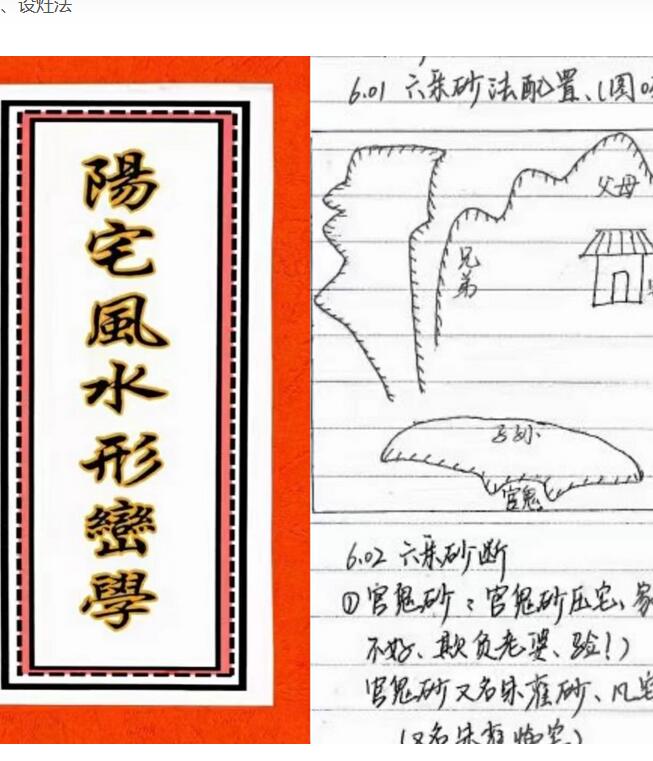 、设灶法
陽宅風水形巒學
6.01 六亲砂法配置、(图
父母
兄弟
子孙
官鬼
6.02 六亲砂断
①官鬼砂：官鬼砂压宅、家
不好、欺负老婆、验！)
官鬼砂又名朱雀砂、凡宅
(又名朱雀临宅)